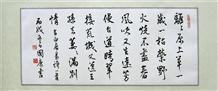 離離原上草一
歲一枯榮野
火燒不盡春
風吹又生遠芳
侵古道晴翠
接荒城又送王
孫去萋萋滿別
情